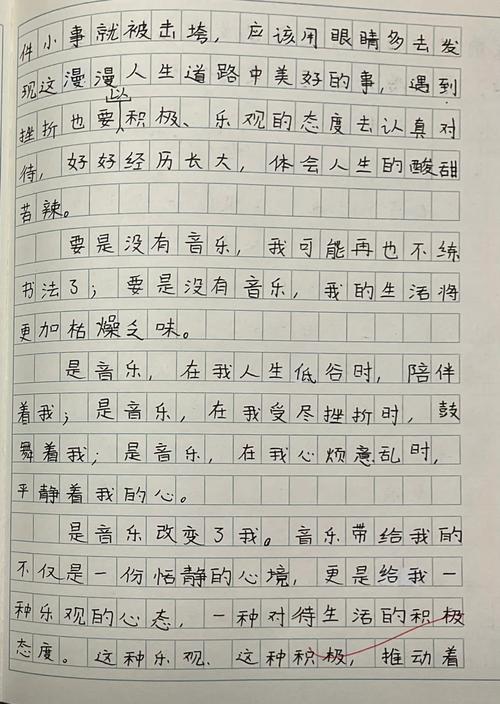 件小事就被击垮，应该用眼睛多去发
现这漫漫人生道路中美好的事，遇到
挫折也要以积极、乐观的态度去认真对
待，好好经历长大，体会人生的酸甜
苦辣。
要是没有音乐，我可能再也不练
书法了；要是没有音乐，我的生活将
更加枯燥乏味。
是音乐，在我人生低谷时，陪伴
着我；是音乐，在我受尽挫折时，鼓
舞着我；是音乐，在我心烦意乱时，
平静着我的心。
是音乐改变了我。音乐带给我的
不仅是一份恬静的心境，更是给我一
种乐观的心态，一种对待生活的积极
态度。这种乐观、这种积极，推动着